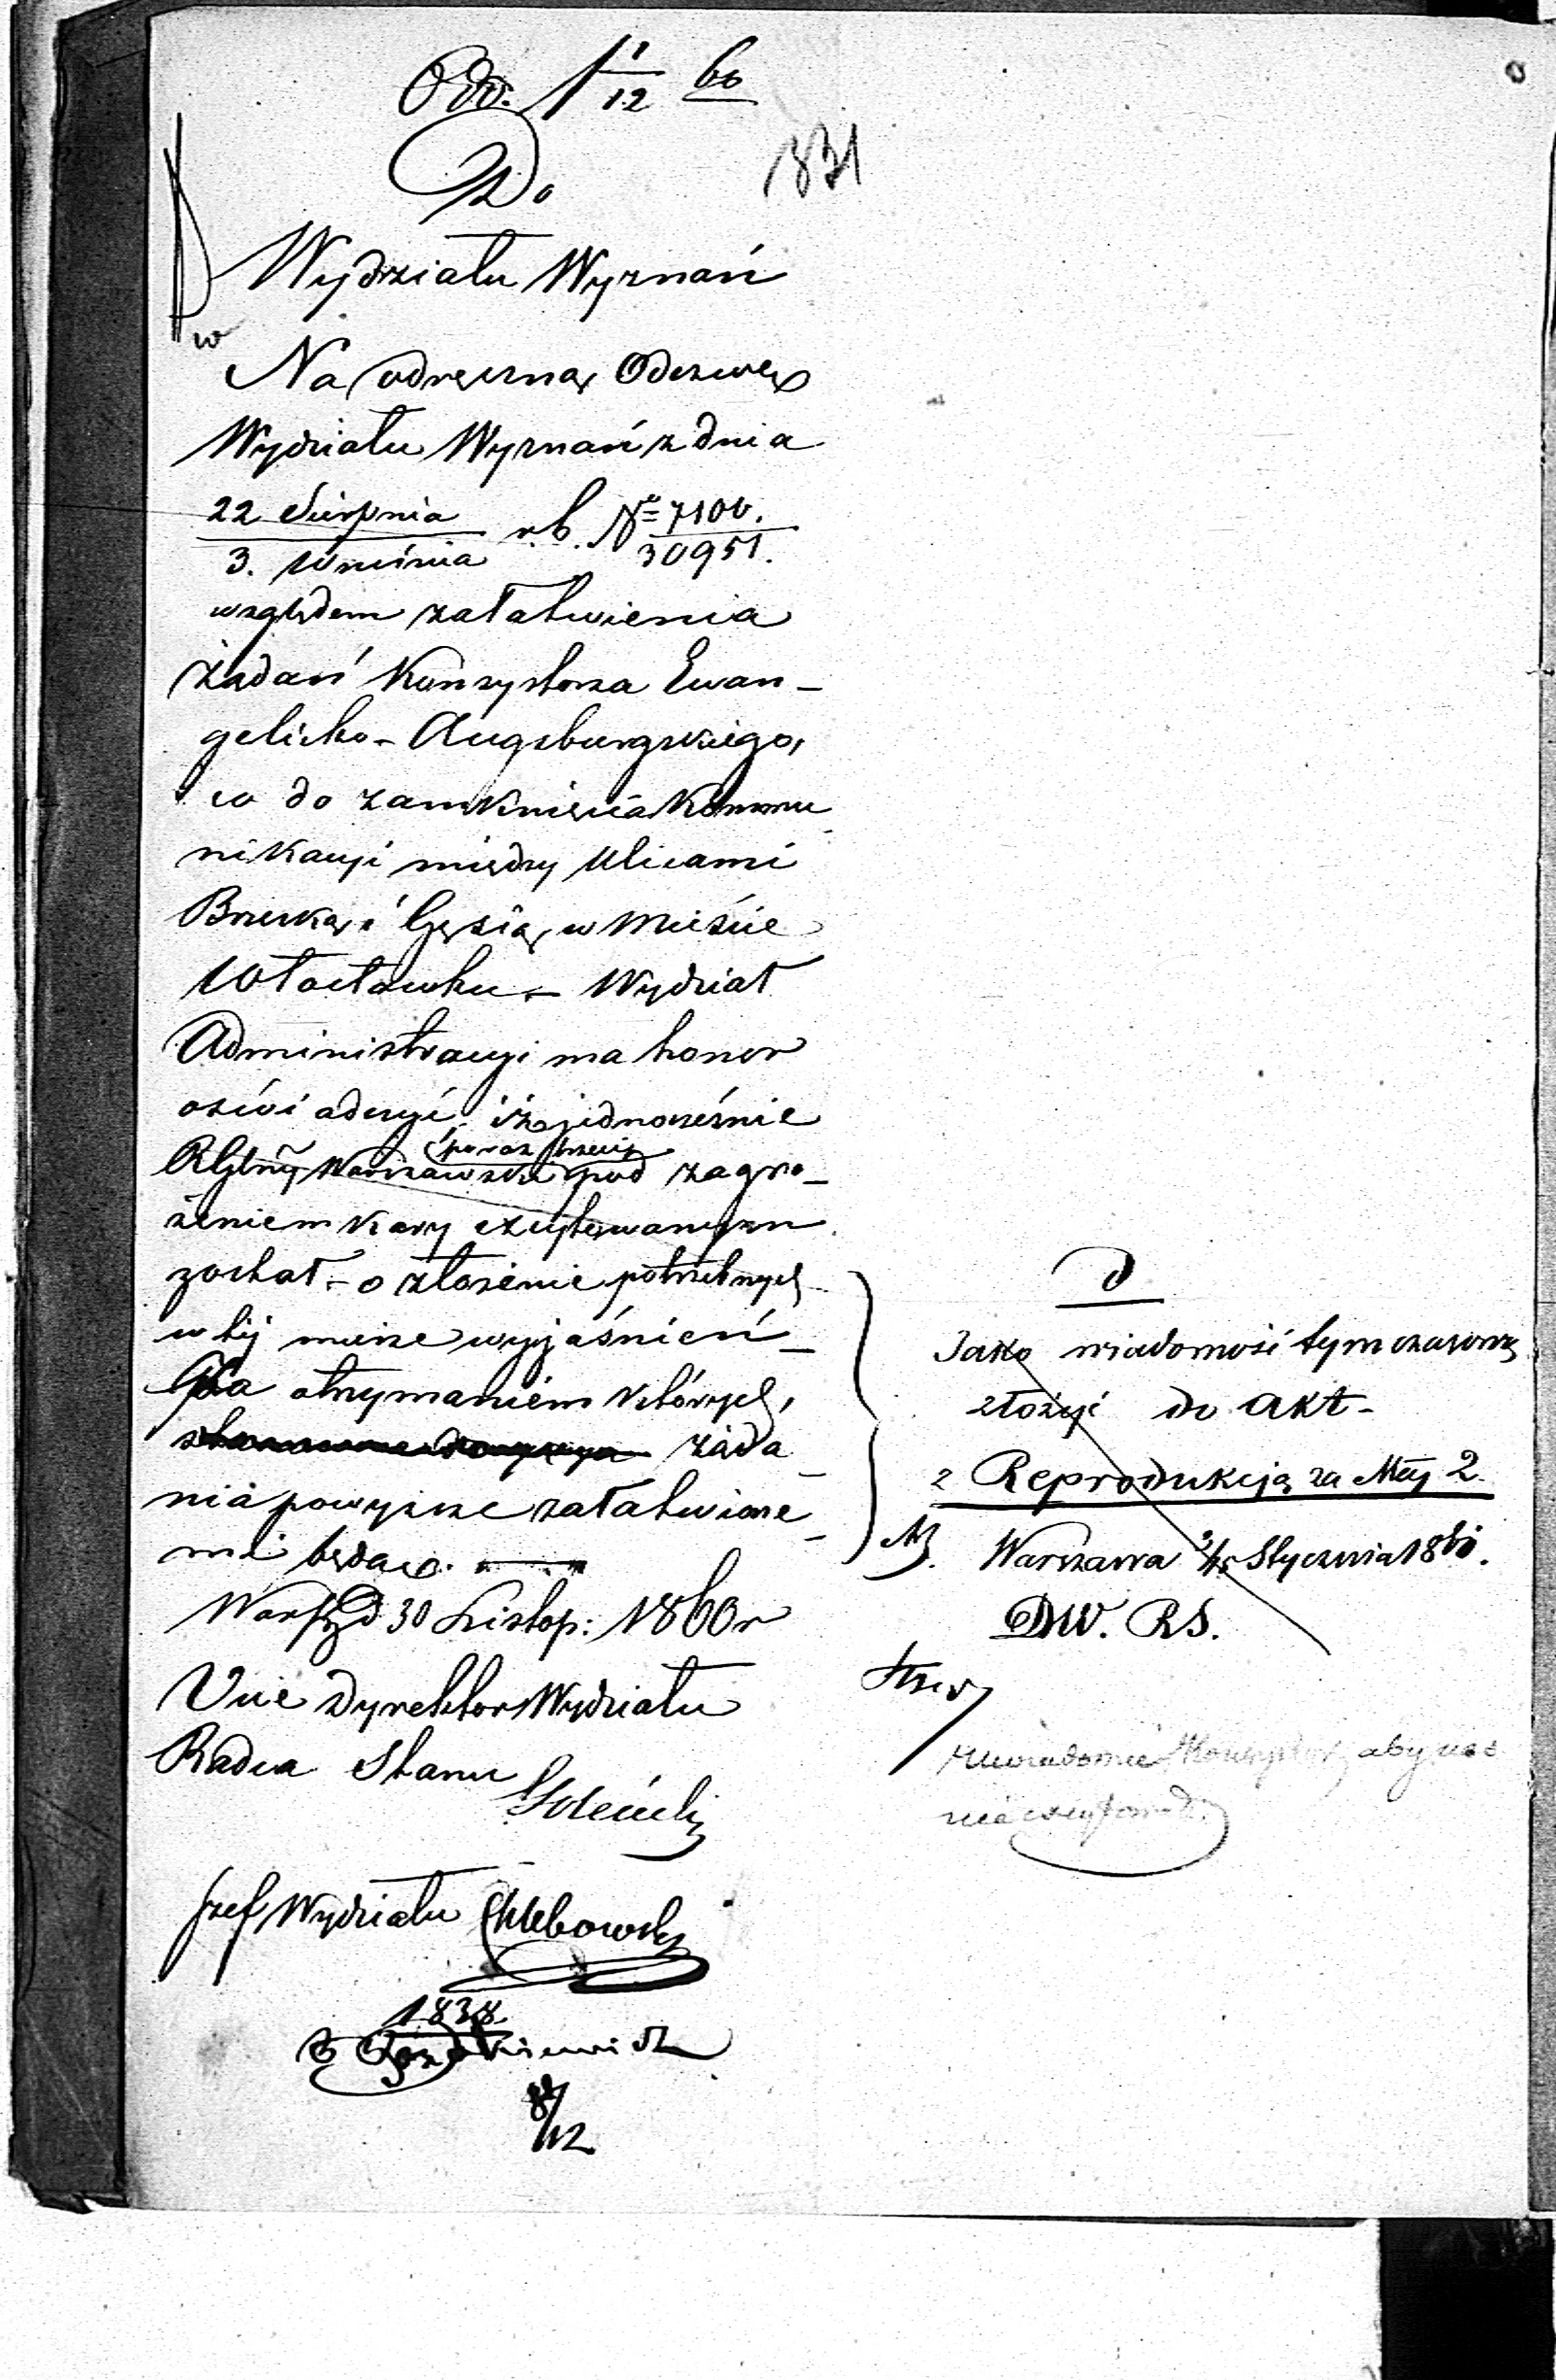 Odd. 1/12 60
831
Do
Wydziału Wyznań
w
Na odręczną Odezwę
Wydziału Wyznań z dnia
22 Sierpnia / 3. Września r.b. № 7100. / 30951.
względem załatwienia
żądań Konsystorza Ewan-
gelicko-Augsburgskiego,
co do zamknięcia Kommu
nikacyi między Ulicami
Brzeską i Gęsią, w Mieście
Włocławku - Wydział
Administracyi ma honor
oświadczyć, iż jednocześnie
po raz trzeci
RGbny Warszawski pod zagro-
żeniem kary excytowanym
został - o złożenie potrzebnych
w tej mierze wyjaśnień -
Za otrzymaniem których,
żąda
nia powyższe załatwione-
mi będą.
Warsz d 30 Listop: 1860 r
Vice Dyrektor Wydziału
Radca Stanu
Szef Wydziału Chlebowski
1838.
8/12
D
Jako wiadomość tymczasową
złożyć do Akt -
z Reprodukcją za Mcy 2.
Warszawa Stycznia 1861.
DW. RS.
zawiadomić Konsystorz aby nas
nie excytował